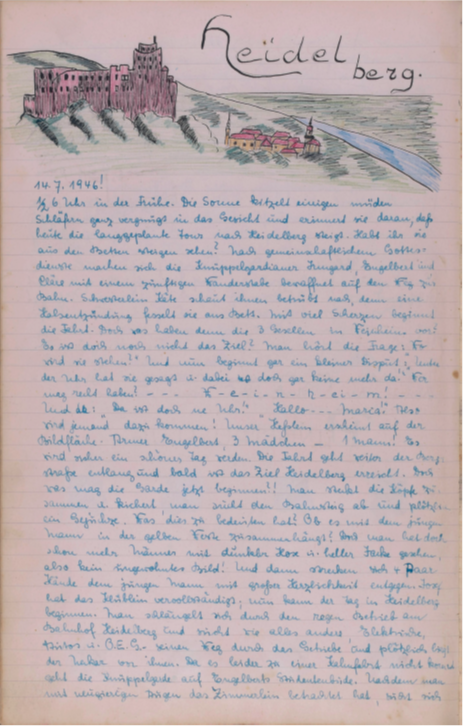 Heidel
berg.
14.7.1946!
½6 Uhr in der Frühe. Die Sonne kitzelt einigen müden
Schläfern ganz vergnügt in das Gesicht und erinnert sie daran, daß
heute die langgeplante Tour nach Heidelberg steigt. Habt ihr sie
aus den Betten steigen sehen? Nach gemeinschaftlichem Gottes-
dienste machen sich die Irmgard, Engelbert und
Cläre mit einem zünftigen Wanderstabe bewaffnet auf den Weg zur
Bahn. Schwesterlein Käte schaut ihnen betrübt nach, denn eine
Halsentzündung fesselt sie ans Bett. Mit viel Scherzen beginnt
die Fahrt. Doch was haben denn die 3 Gesellen in vor?
Da ist doch noch nicht das Ziel? Man hört die Frage: Wo
wird sie stehen?" Und nun beginnt gar ein kleiner Disput: "Unter
der Uhr hat sie gesagt u. dabei is doch gar keine mehr da." Wer
mag recht haben? - - - W-e-i-n-h-e-i-m! - - -
Und da: "Da ist doch ne Uhr!" "Hallo --- Maria!"
wird jemand dazu kommen! Unser erscheint auf der
Bildfläche. Armer Engelbert, 3 Mädchen - 1 Mann! Es
wird sicher ein schöner Tag werden. Die Fahrt geht weiter der Berg-
straße entlang und bald ist das Ziel Heidelberg erreicht. Doch
was mag die Garde jetzt beginnen?! Man steckt die Köpfe zu-
sammen u. kichert, man sucht den Bahnsteig ab und plötzlich
ein Gejuchze. Was dies zu bedeuten hat? Ob es mit dem jungen
Mann in der gelben Weste zusammenhängt? Doch man hat doch
schon mehr Männer mit dunkler Hose u. heller Jacke gesehen,
also kein ungewohntes Bild! Und dann strecken sich 4 Paar
Hände dem jungen Mann mit großer Herzlichkeit entgegen. Josef
hat das Kleeblatt vervollständigt, nun kann der Tag in Heidelberg
beginnen. Man schlängelt sich durch den regen Betrieb am
Bahnhof Heidelberg und sucht wie alles andere, Elektrische,
Autos u. O.E.G. seinen Weg durch das Getriebe und plötzlich liegt
der Neckar vor ihnen. Da es leider zu einer Kahnfahrt nicht kommt
geht die auf Engelberts Studentenbude. Nachdem man
mit neugierigen Augen das Zimmerlein betrachtet hat, sich